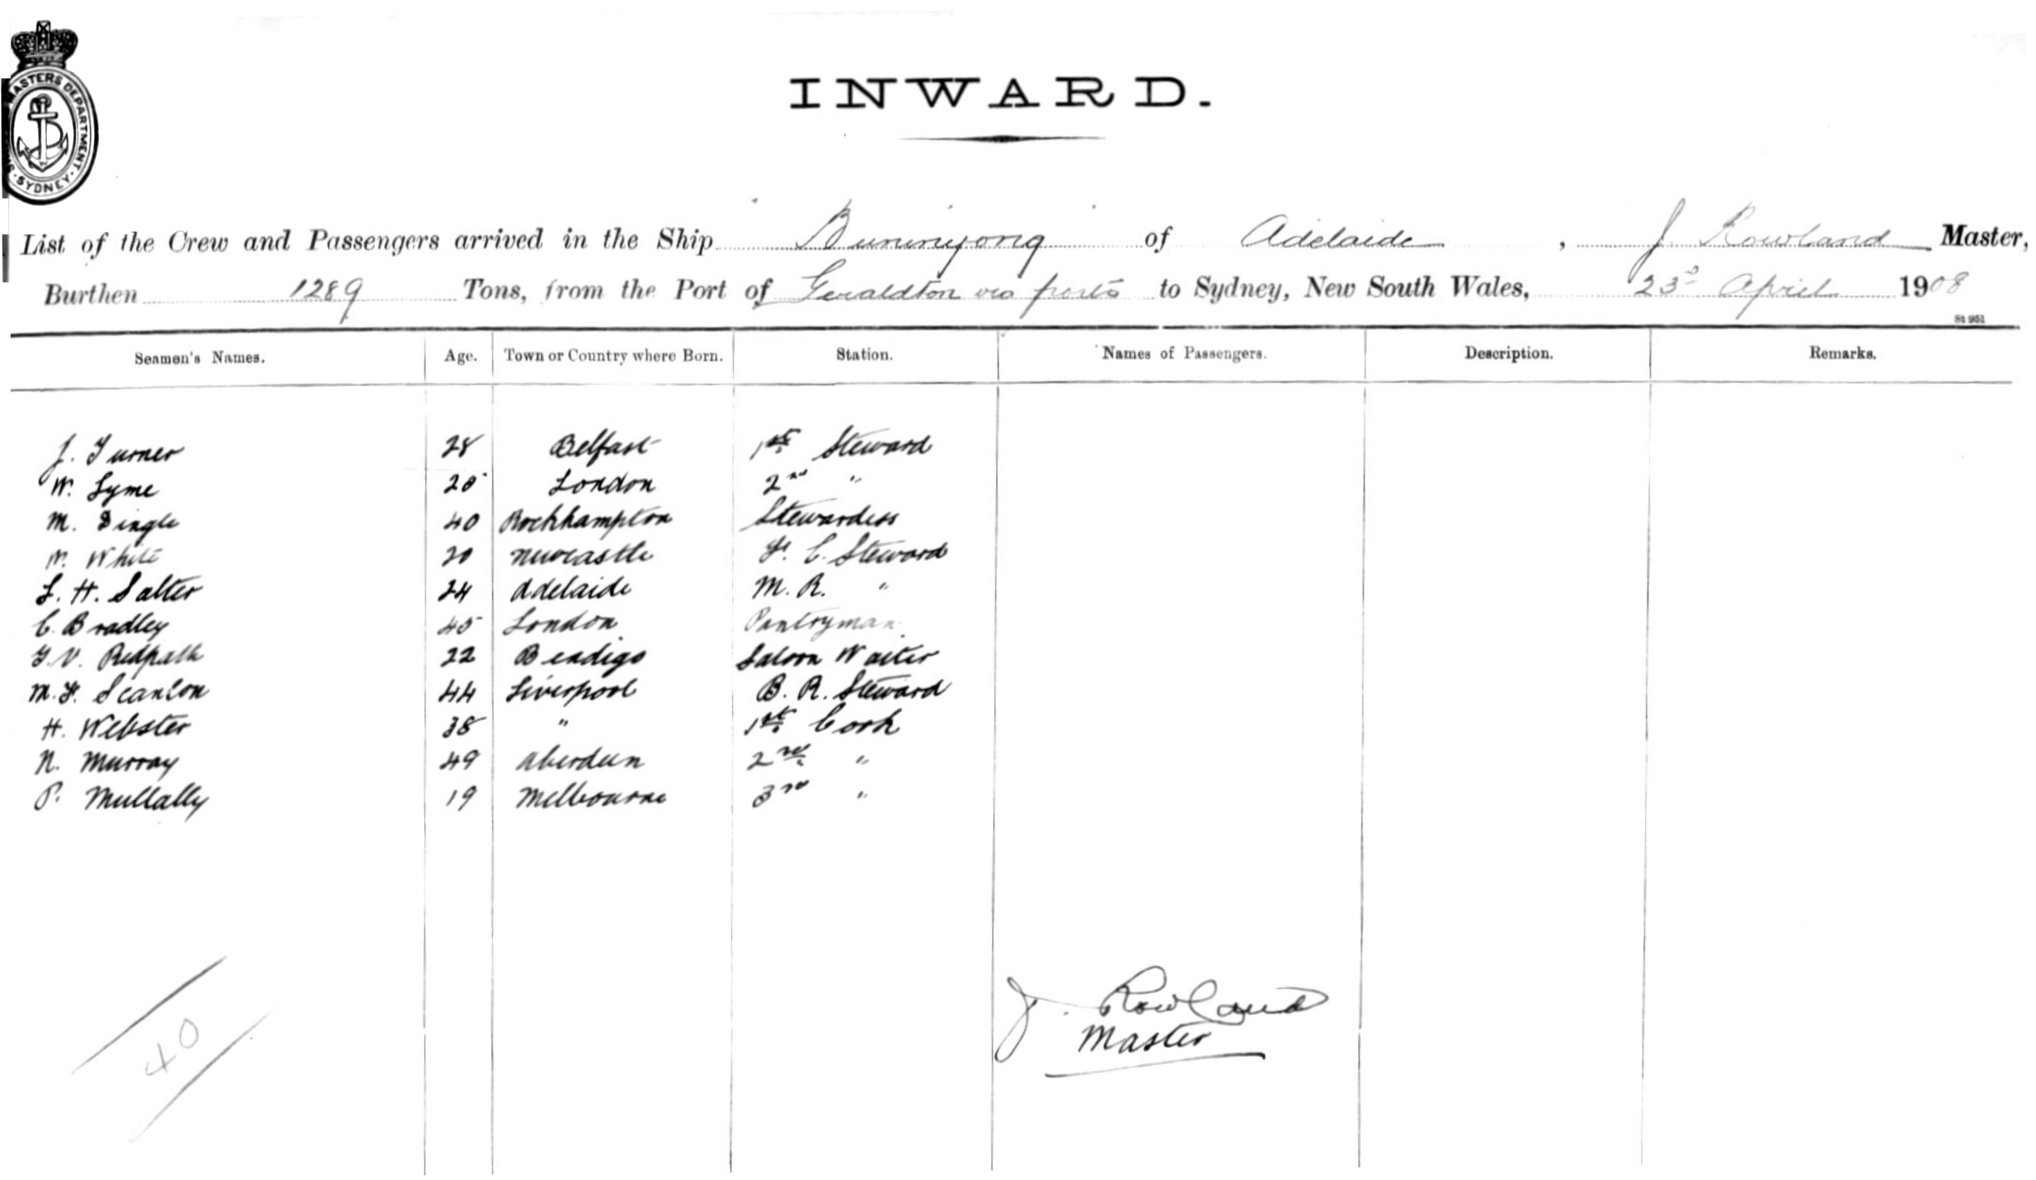 INWARD.
MASTERS DEPARTMENT. SYDNEY.
List of the Crew and Passengers arrived in the Ship Buninyong of Adelaide, J. Rowland Master,
Burthen 1289 Tons, from the Port of Geraldton via ports to Sydney, New South Wales, 23rd April 1908
St 951
Seamen's Names. Age. Town or Country where Born. Station. Names of Passengers. Description. Remarks.
J. Turner 28 Belfast 1st Steward
W. Syme 20 London 2nd "
M. Dingle 40 Rockhampton Stewardess
W. White 20 Newcastle F. C. Steward
L. H. Salter 24 Adelaide M. R. "
C. Bradley 45 London Pantryman
G. V. Redpath 22 Bendigo Saloon Waiter
M. F. Scanlon 44 Liverpool B. R. Steward
H. Webster 38 " 1st Cook
N. Murray 49 Aberdeen 2nd "
P. Mullally 19 Melbourne 3rd "
J. Rowland
Master
40